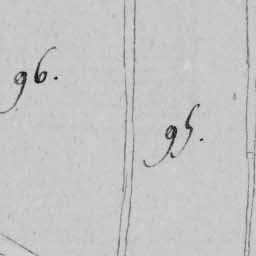 96.
95.